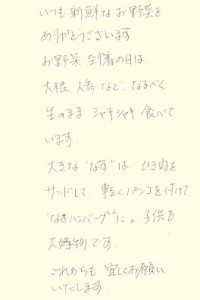 いつも新鮮なお野菜を
ありがとうございます
お野菜到着の日は、
大根、人参など、なるべく
生のまま シャキシャキ 食べて
います。
大きな"なす"は ひき肉を
サンドして、軽くパンコを付けて
"なすハンバーグ"に。子供も
大好物です。
これからも 宜しくお願い
いたします。